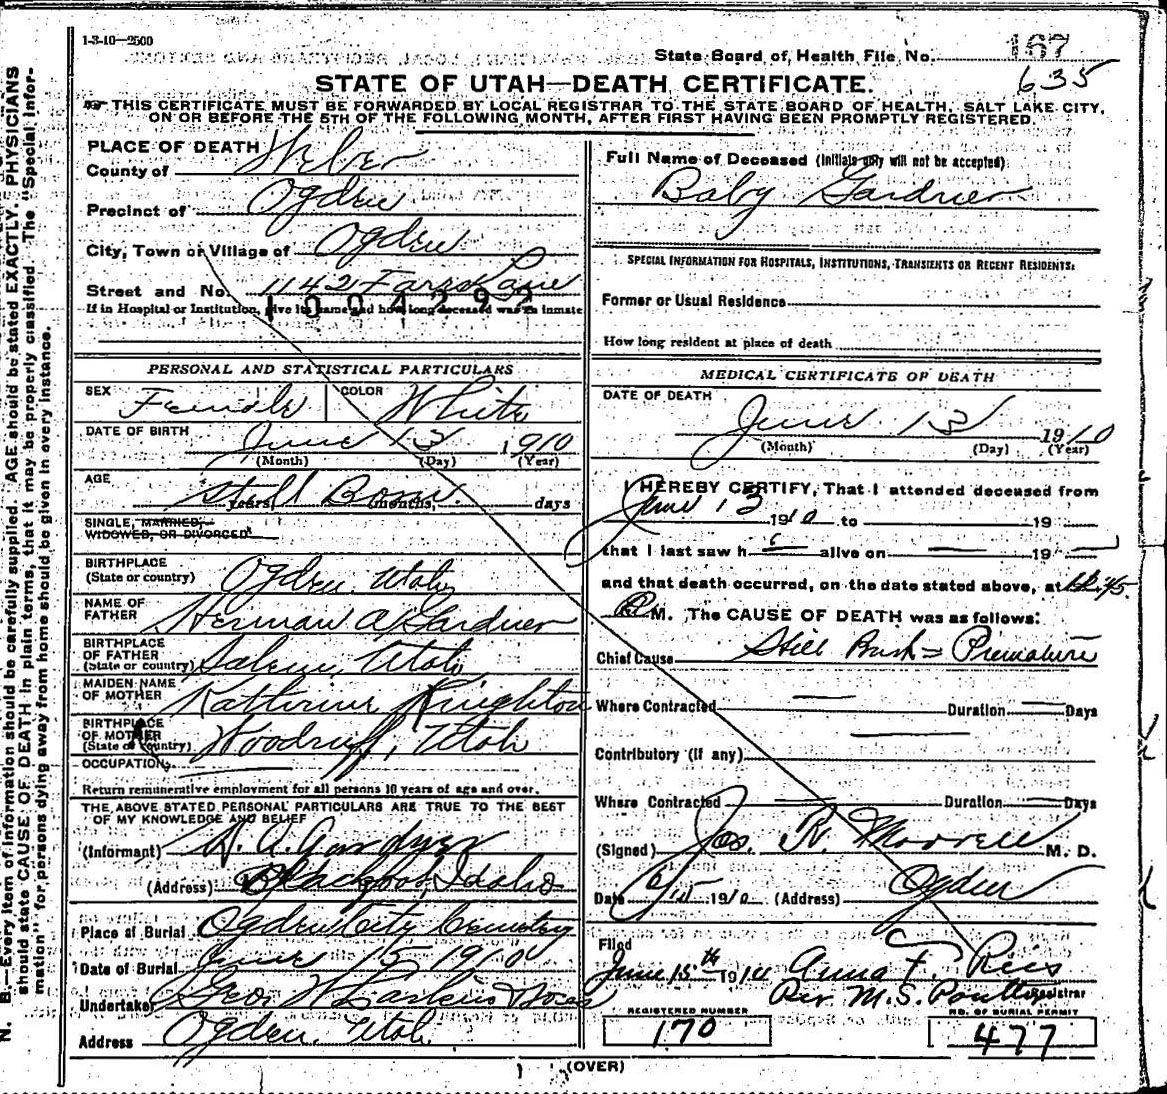 1-3-10—2500
State Board of Health File No. 167
635
STATE OF UTAH—DEATH CERTIFICATE.
THIS CERTIFICATE MUST BE FORWARDED BY LOCAL REGISTRAR TO THE STATE BOARD OF HEALTH, SALT LAKE CITY,
ON OR BEFORE THE 5TH OF THE FOLLOWING MONTH, AFTER FIRST HAVING BEEN PROMPTLY REGISTERED.
N. B.—Every item of information should be carefully supplied. AGE should be stated EXACTLY. PHYSICIANS
should state CAUSE OF DEATH in plain terms, that it may be properly classified. The "Special Infor-
mation" for persons dying away from home should be given in every instance.
PLACE OF DEATH
County of Weber
Precinct of Ogden
City, Town or Village of Ogden
Street and No. 1142 Farr Lane
1004292
If in Hospital or Institution, give its name and how long deceased was an inmate
PERSONAL AND STATISTICAL PARTICULARS
SEX Female COLOR White
DATE OF BIRTH June 13 1910
(Month) (Day) (Year)
AGE Still Born
years, months, days
SINGLE, MARRIED,
WIDOWED, OR DIVORCED
BIRTHPLACE
(State or country) Ogden, Utah
NAME OF
FATHER Herman A Gardner
BIRTHPLACE
OF FATHER
(State or country) Salem, Utah
MAIDEN NAME
OF MOTHER Katherine Knighton
BIRTHPLACE
OF MOTHER
(State or country) Woodruff, Utah
OCCUPATION
Return remunerative employment for all persons 10 years of age and over.
THE ABOVE STATED PERSONAL PARTICULARS ARE TRUE TO THE BEST
OF MY KNOWLEDGE AND BELIEF
(Informant) H. A. Gardner
(Address) Blackfoot, Idaho
Place of Burial Ogden City Cemetery
Date of Burial June 15 1910
Undertaker Geo. W Larkin & Sons
Address Ogden, Utah
Full Name of Deceased (Initials only will not be accepted)
Baby Gardner
SPECIAL INFORMATION FOR HOSPITALS, INSTITUTIONS, TRANSIENTS OR RECENT RESIDENTS:
Former or Usual Residence
How long resident at place of death
MEDICAL CERTIFICATE OF DEATH
DATE OF DEATH
June 13 1910
(Month) (Day) (Year)
I HEREBY CERTIFY, That I attended deceased from
June 13 1910 to 19
that I last saw h alive on 19
and that death occurred, on the date stated above, at 12.45
P M. The CAUSE OF DEATH was as follows:
Chief Cause Still Birth = Premature
Where Contracted Duration Days
Contributory (if any)
Where Contracted Duration Days
(Signed) Jos. R. Morrell M. D.
Date 6/15 1910 (Address) Ogden
Filed
June 15th 1910 Anna F. Ries
Per M. S. Poulter Registrar
REGISTERED NUMBER
170
NO. OF BURIAL PERMIT
477
(OVER)